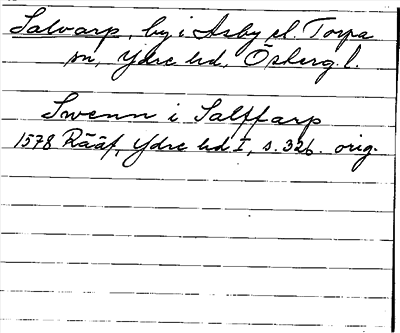 Salvarp, by i Asby el. Torpa
sn, Ydre hd, Österg. l.
Swenn i Salffarp
1578 Rääf, Ydre hd I, s. 326. orig.